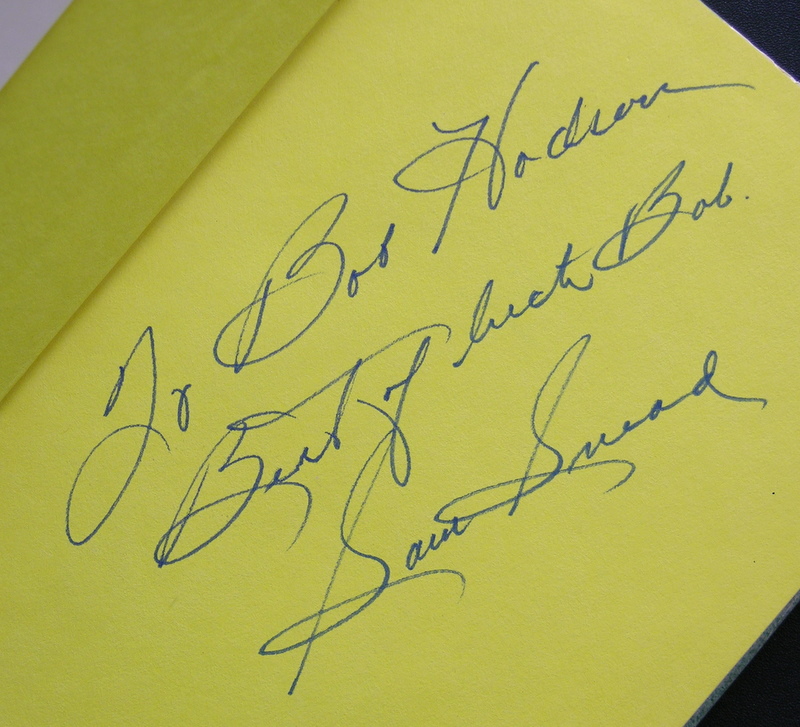 To Bob Hodson
Best of luck Bob.
Sam Snead